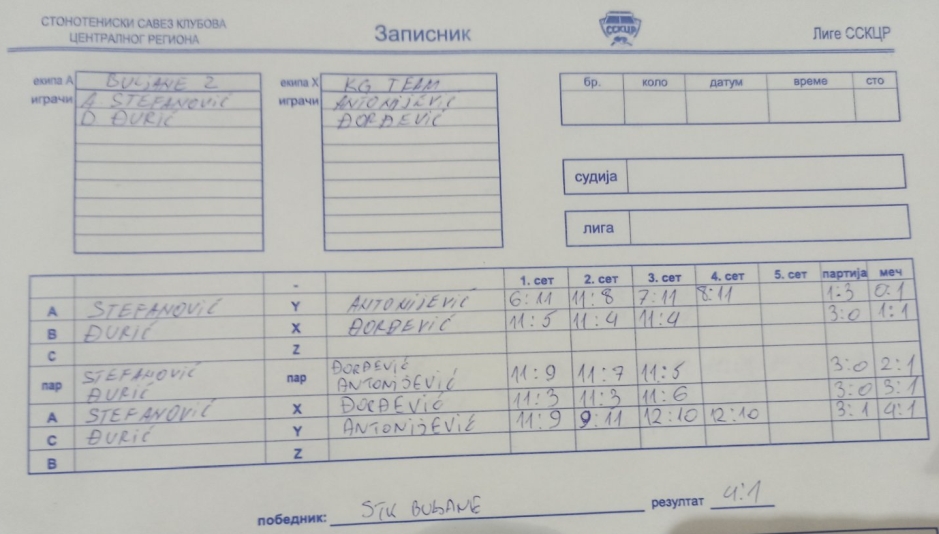 СТОНОТЕНИСКИ САВЕЗ КЛУБОВА
ЦЕНТРАЛНОГ РЕГИОНА
Записник
ССКЦР
Лиге ССКЦР
екипа А BULJANE 2
играчи A STEFANOVIĆ
D ĐURIĆ
екипа X KG TEAM
играчи ANTONIJEVIĆ
ĐORĐEVIĆ
бр. коло датум време сто
судија
лига
- 1. сет 2. сет 3. сет 4. сет 5. сет партија меч
A STEFANOVIĆ Y ANTONIJEVIĆ 6:11 11:8 7:11 8:11 1:3 0:1
B ĐURIĆ X ĐORĐEVIĆ 11:5 11:4 11:4 3:0 1:1
C Z
пар STEFANOVIĆ ĐURIĆ пар ĐORĐEVIĆ ANTONIJEVIĆ 11:9 11:7 11:5 3:0 2:1
A STEFANOVIĆ X ĐORĐEVIĆ 11:3 11:3 11:6 3:0 3:1
C ĐURIĆ Y ANTONIJEVIĆ 11:9 9:11 12:10 12:10 3:1 4:1
B Z
победник: STK BULJANE резултат 4:1